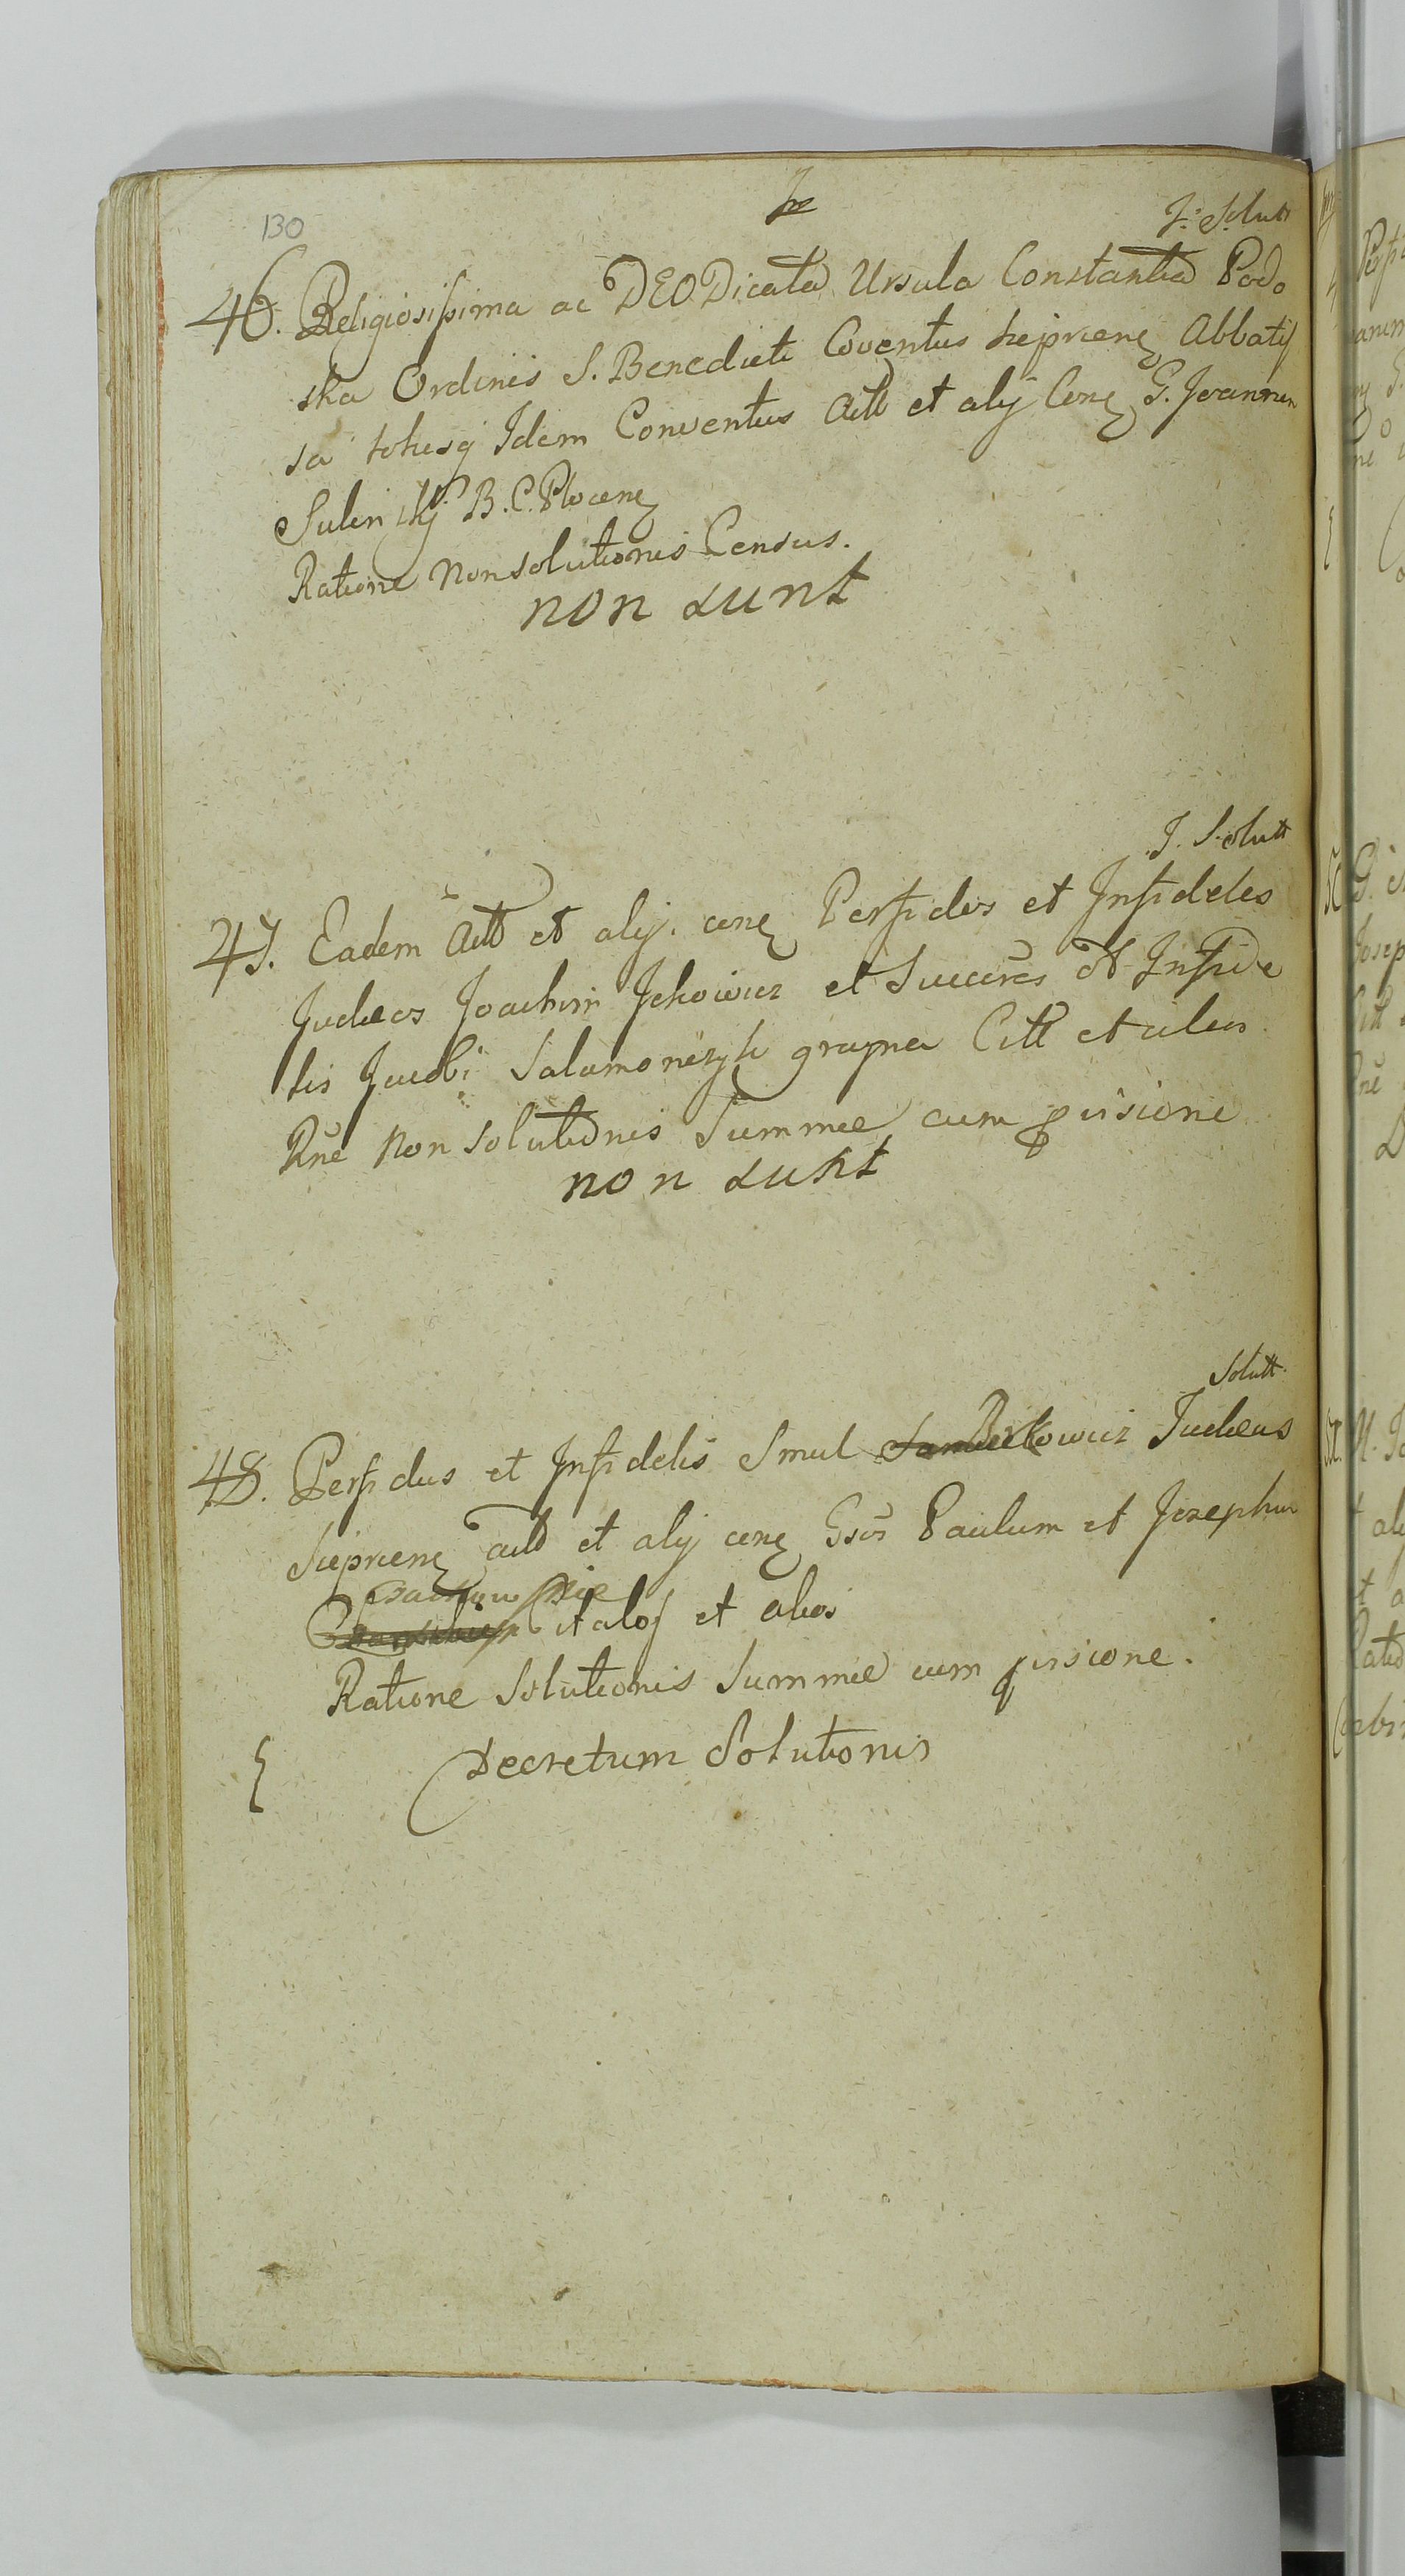 130
J. Solutt
46. Religiosissima ac DEO Dicata Ursula Constantia Podo
ska Ordinis S. Benedicti Coventus Sieprcens Abbatis
sa totusq Idem Conventus Actt et alij Cons G. Joannem
Sulinskj B. C. Plocens
Ratione Non solutionis Census.
non sunt
J. Solutt
47. Eadem Actt et alij. cons Perfidos et Infideles
Judaeos Joachim Jckowicz et Succres et Infide
lis Jacobi Salamonczyk Citt et alios
Rne Non Solutionis Summae cum pvisione
non sunt
Solutt.
48. Perfidus et Infidelis Smul Berkowicz Judaeus
Sieprcens actt et alij cons Gsos Paulum et Josephum
citatos et alios
Ratione Solutionis Summae cum pvisione.
Decretum Solutionis